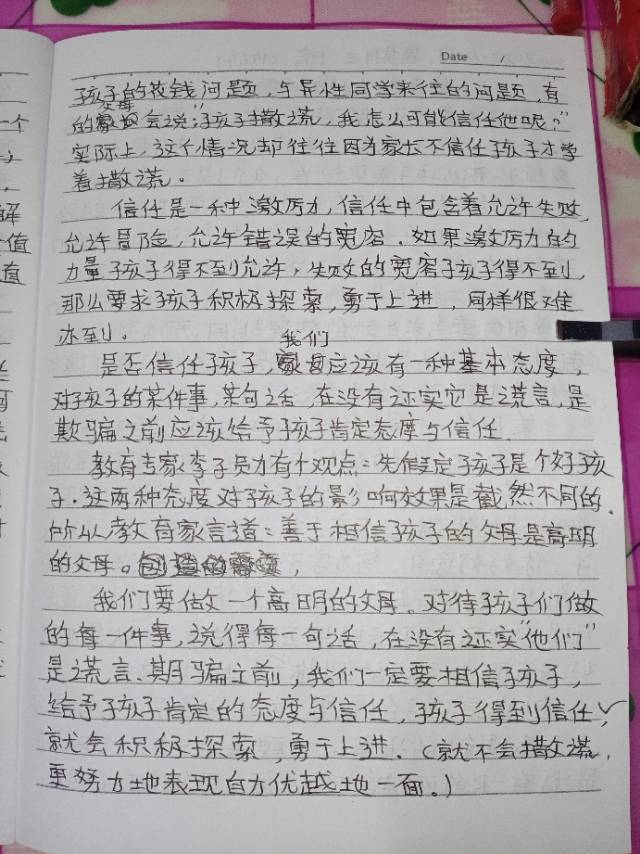 Date /
孩子的花钱问题，与异性同学来往的问题，有
的父母会说："孩子撒谎，我怎么可能信任他呢？"
实际上，这个情况却往往因为家长不信任孩子才学
着撒谎。
信任是一种激厉力，信任中包含着允许失败，
允许冒险，允许错误的宽容．如果激厉力的
力量孩子得不到允许，失败的宽容子孩子得不到，
那么要求孩子积极探索，勇于上进，同样很难
办到。
是否信任孩子，我们应该有一种基本态度，
对孩子的某件事，某句话，在没有证实它是谎言，是
欺骗之前应该给予孩子肯定态度与信任．
教育专家李子勋有个观点：先假定孩子是个好孩
子．这两种态度对孩子的影响效果是截然不同的．
所以教育家言道：善于相信孩子的父母是高明
的父母。
我们要做一个高明的父母。对待孩子们做
的每一件事，说得每一句话，在没有证实"他们"
是谎言．期骗之前，我们一定要相信孩子，
给予孩子肯定的态度与信任，孩子得到信任，
就会积极探索，勇于上进．（就不会撒谎，
更努力地表现自方优越地一面。）
一个
解
值
直